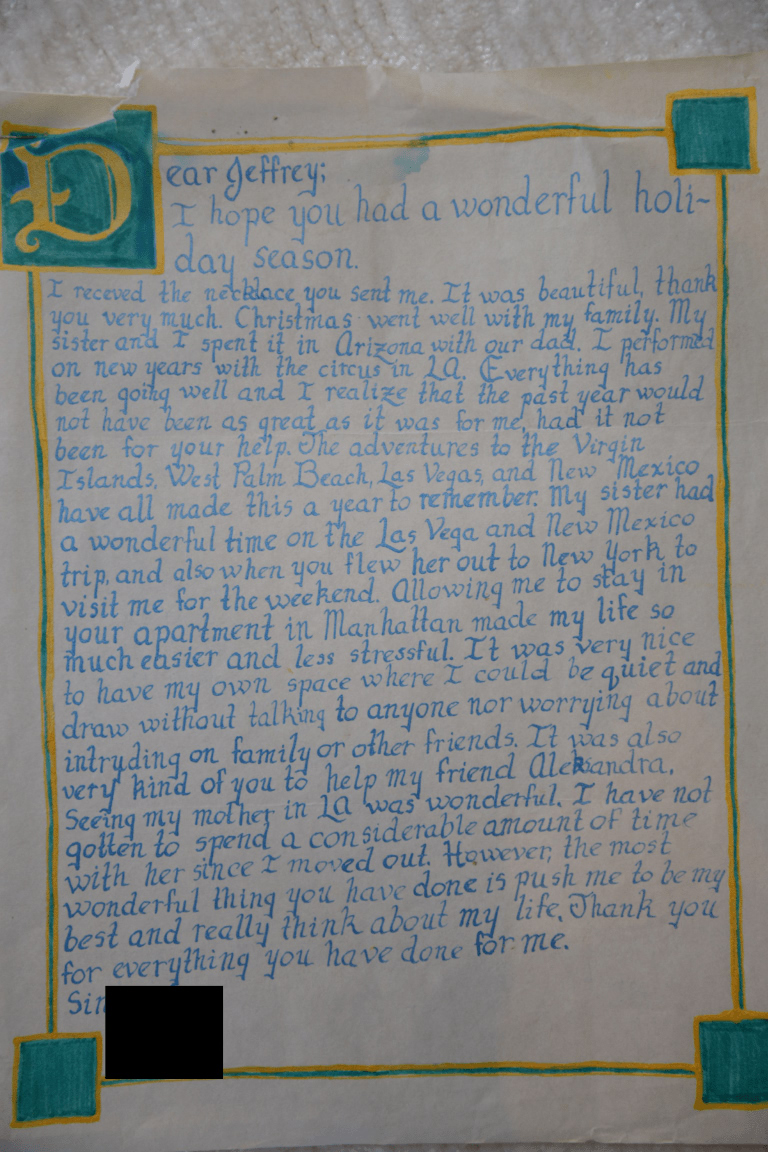 Dear Jeffrey;
I hope you had a wonderful holi~
day season.
I receved the necklace you sent me. It was beautiful, thank
you very much. Christmas went well with my family. My
sister and I spent it in Arizona with our dad. I performed
on new years with the circus in LA. Everything has
been going well and I realize that the past year would
not have been as great as it was for me, had it not
been for your help. The adventures to the Virgin
Islands, West Palm Beach, Las Vegas, and New Mexico
have all made this a year to remember. My sister had
a wonderful time on the Las Vega and New Mexico
trip, and also when you flew her out to New York to
visit me for the weekend. Allowing me to stay in
your apartment in Manhattan made my life so
much easier and less stressful. It was very nice
to have my own space where I could be quiet and
draw without talking to anyone nor worrying about
intryding on family or other friends. It was also
very kind of you to help my friend Aleksandra.
Seeing my mother in LA was wonderful. I have not
gotten to spend a considerable amount of time
with her since I moved out. However, the most
wonderful thing you have done is push me to be my
best and really think about my life. Thank you
for everything you have done for me.
Sin